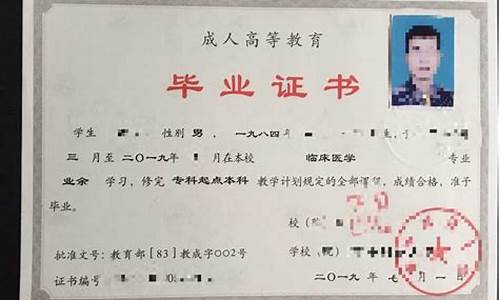 成人高等教育
毕业证书
学生 性别 男， 一九八四年 生，于
三 月至 二〇一九年 月在本校 临床医学 专业
业余 学习，修完 专科起点本科 教学计划规定的全部课程，成绩合格，准予
毕业。
校（
批准文号：教育部［83］教成字002号 学校（院）
证书编号 二〇一九年 七 月 一 日